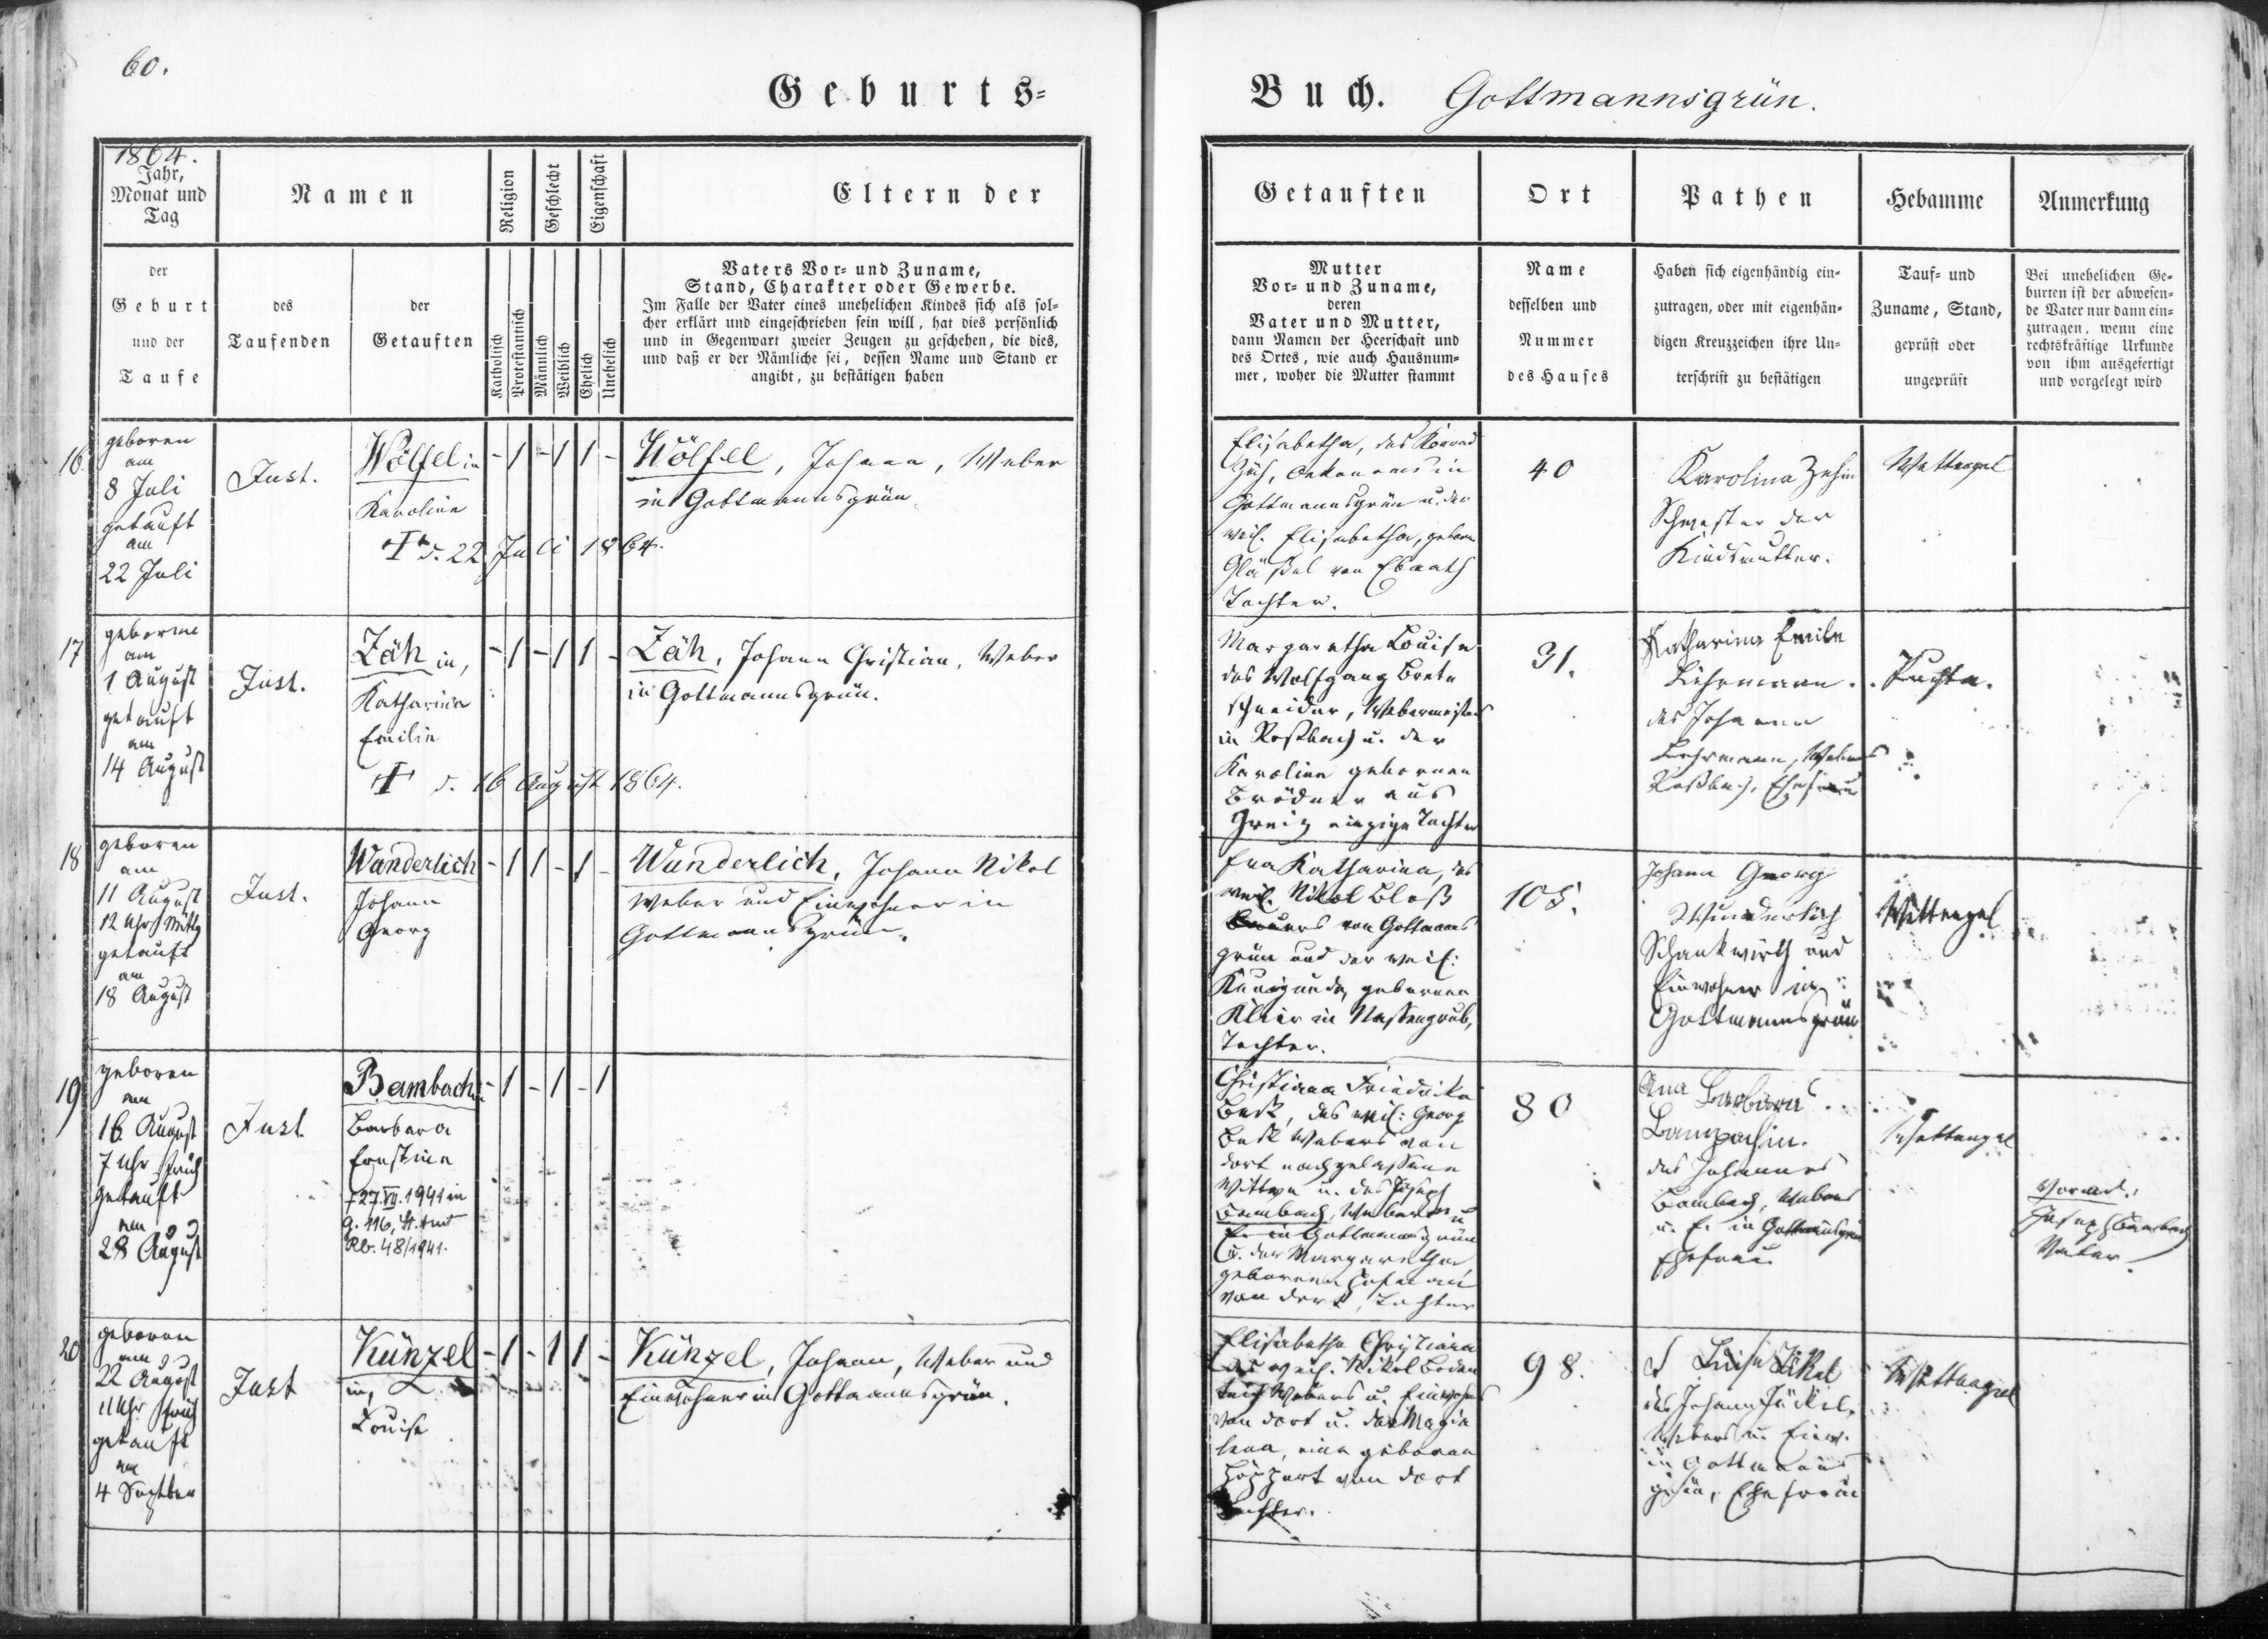 60.
Geburts-
Buch. Gottmannsgrün.
1864.
Jahr,
Monat und
Tag
Namen
Religion
Geschlecht
Eigenschaft
Eltern der
Getauften
Ort
Pathen
Hebamme
Anmerkung
der
Geburt
und der
Taufe
des
Taufenden
der
Getauften
Katholisch
Protestantisch
Männlich
Weiblich
Ehelich
Unehelich
Vaters Vor- und Zuname,
Stand, Charakter oder Gewerbe.
Im Falle der Vater eines unehelichen Kindes sich als sol-
cher erklärt und eingeschrieben sein will, hat dies persönlich
und in Gegenwart zweier Zeugen zu geschehen, die dies,
und daß er der Nämliche sei, dessen Name und Stand er
angibt, zu bestätigen haben
Mutter
Vor- und Zuname,
deren
Vater und Mutter,
dann Namen der Heerschaft und
des Ortes, wie auch Hausnum-
mer, woher die Mutter stammt
Name
desselben und
Nummer
des Hauses
Haben sich eigenhändig ein-
zutragen, oder mit eigenhän-
digen Kreuzzeichen ihre Un-
terschrift zu bestätigen
Tauf- und
Zuname, Stand,
geprüft oder
ungeprüft
Bei unehelichen Ge-
burten ist der abwesen-
de Vater nur dann ein-
zutragen, wenn eine
rechtskräftige Urkunde
von ihm ausgefertigt
und vorgelegt wird
16
geboren
am
8 Juli
getauft
am
22 Juli
Just.
Wölfel in
Karoline
† d. 22 Juli 1864.
- 1 - 1 1 -
Wölfel, Johann, Weber
in Gottmannsgrün.
Elisabetha, des Konrad
Zäh, Oekonoms in
Gottmannsgrün u. der
weil. Elisabetha, geborn
Gläßel von Ebmath
Tochter.
40
Karolina Zehin
Schwester der
Kindsmutter.
Wettengel
17
geboren
am
1 August
getauft
am
14 August
Just.
Zäh in,
Katharina
Emilie
† d. 16 August 1864.
- 1 - 1 1 -
Zäh, Johann Christian, Weber
in Gottmannsgrün.
Margaretha Louise
des Wolfgang Brets
schneider, Webermeisters
in Roßbach u. der
Karoline gebornen
Brödner aus
Greiz einzige Tochter
31.
Katharina Emile
des Johann
Roßbach, Ehefrau
Puchta.
18
geboren
am
11 August
12 Uhr Mittg
getauft
am
18 August
Just.
Wunderlich
Johann
Georg
- 1 1 - 1 -
Wunderlich, Johann Nikol
Weber und Einwohner in
Gottmannsgrün.
Eva Katharina, des
weil. Nikol Bloß
von Gottmanns
grün und der weil:
Kunigunda gebornen
Klier in Nassengrub,
Tochter.
105.
Johann Georg
Wunderlich
Schankwirth und
Einwohner in
Gottmannsgrün
Wettengel
19
geboren
am
16 August
7 Uhr früh
getauft
am
28 August
Just.
Bambach in
Barbara
Ernstine
† 27. VII. 1941 in
G. 116, St. Amt
Rb. 48/1941.
- 1 - 1 - 1
Christiana Friedrike
Beck, des weil: Georg
Beck Webers von
dort nachgelassene
Wittwe u. des Joseph
Bambach, Webers u
E. in Gottmannsgrün
u. der Margaretha
gebornen Hofmann
von dort, Tochter
80
Ana Barbara
des Johannes
Bambach, Webers
u. E. in Gottmannsgrün
Ehefrau
Wettengel
Joseph Bambach
Vater.
20
geboren
am
22 August
11 Uhr früh
getauft
am
4 Septber
Just
Künzel
in,
Louise
- 1 - 1 1 -
Künzel, Johann, Weber und
Einwohner in Gottmannsgrün.
Elisabetha Christiana
des weil. Nikol Boden
teich Webers u. Einwohners
von dort u. der Magda
lena, eine geborene
von dort
Tochter.
98.
Luise Jäkel
des Johann Jäckel,
Webers u. Einw.
in Gottmanns
grün, Ehefrau
Wettengel